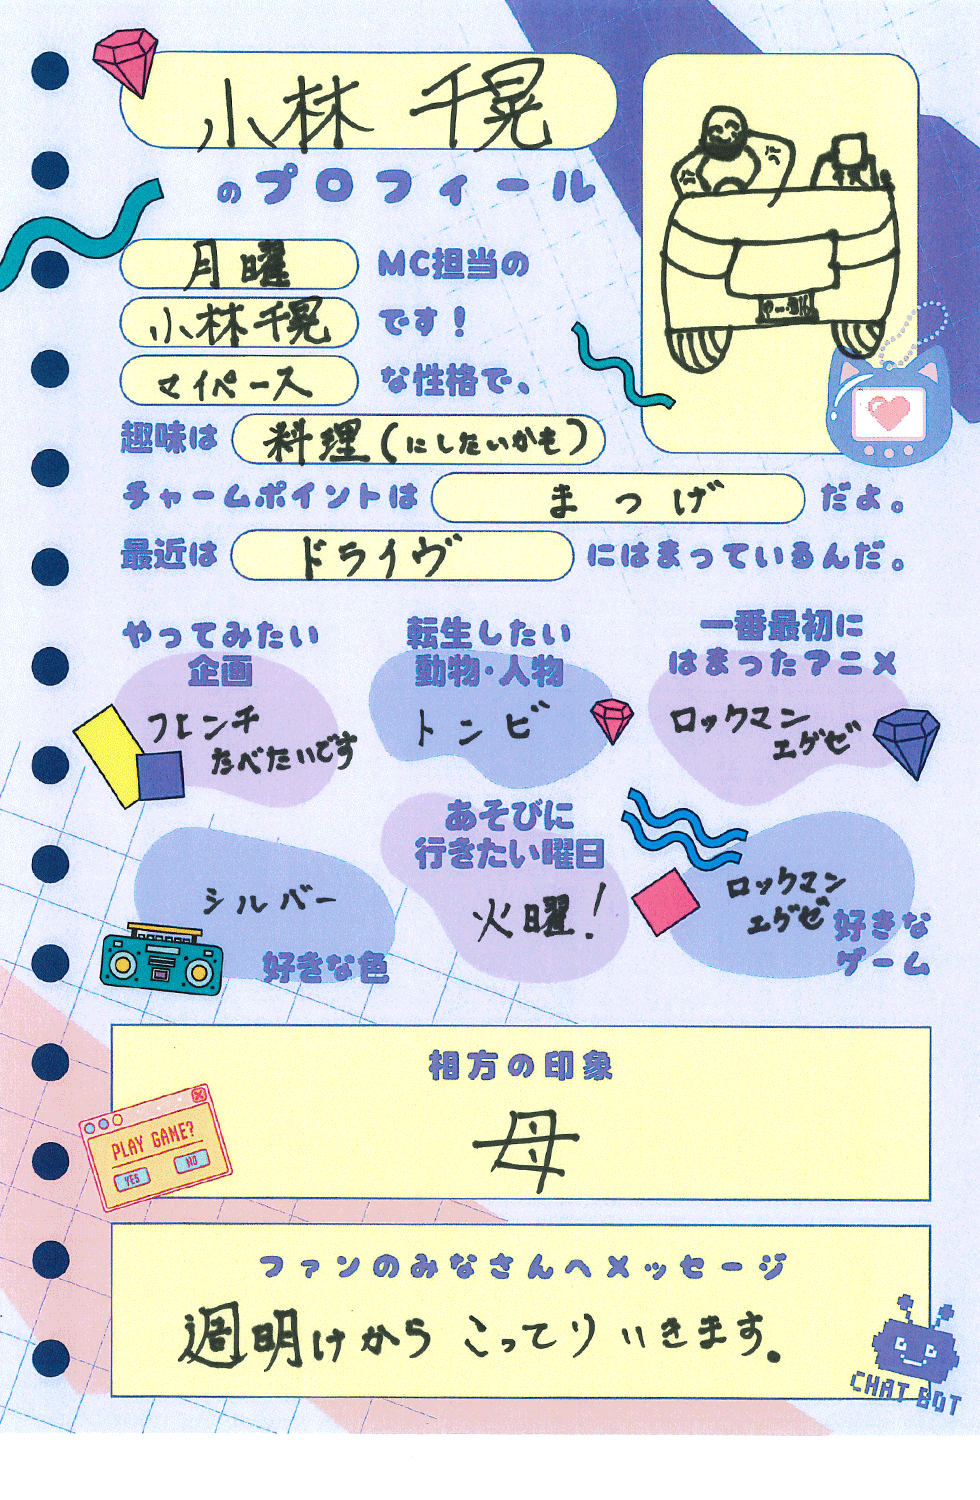 小林 千晃
のプロフィール
月曜 MC担当の
小林千晃 です！
マイペース な性格で、
趣味は 料理(にしたいかも)
チャームポイントは まつげ だよ。
最近は ドライヴ にはまっているんだ。
やってみたい
企画
フレンチ
たべたいです
転生したい
動物・人物
トンビ
一番最初に
はまったアニメ
ロックマン
エグゼ
シルバー
好きな色
あそびに
行きたい曜日
火曜！
ロックマン
エグゼ
好きな
ゲーム
相方の印象
母
PLAY GAME?
YES NO
ファンのみなさんへメッセージ
週明けから こってり いきます。
CHAT BOT